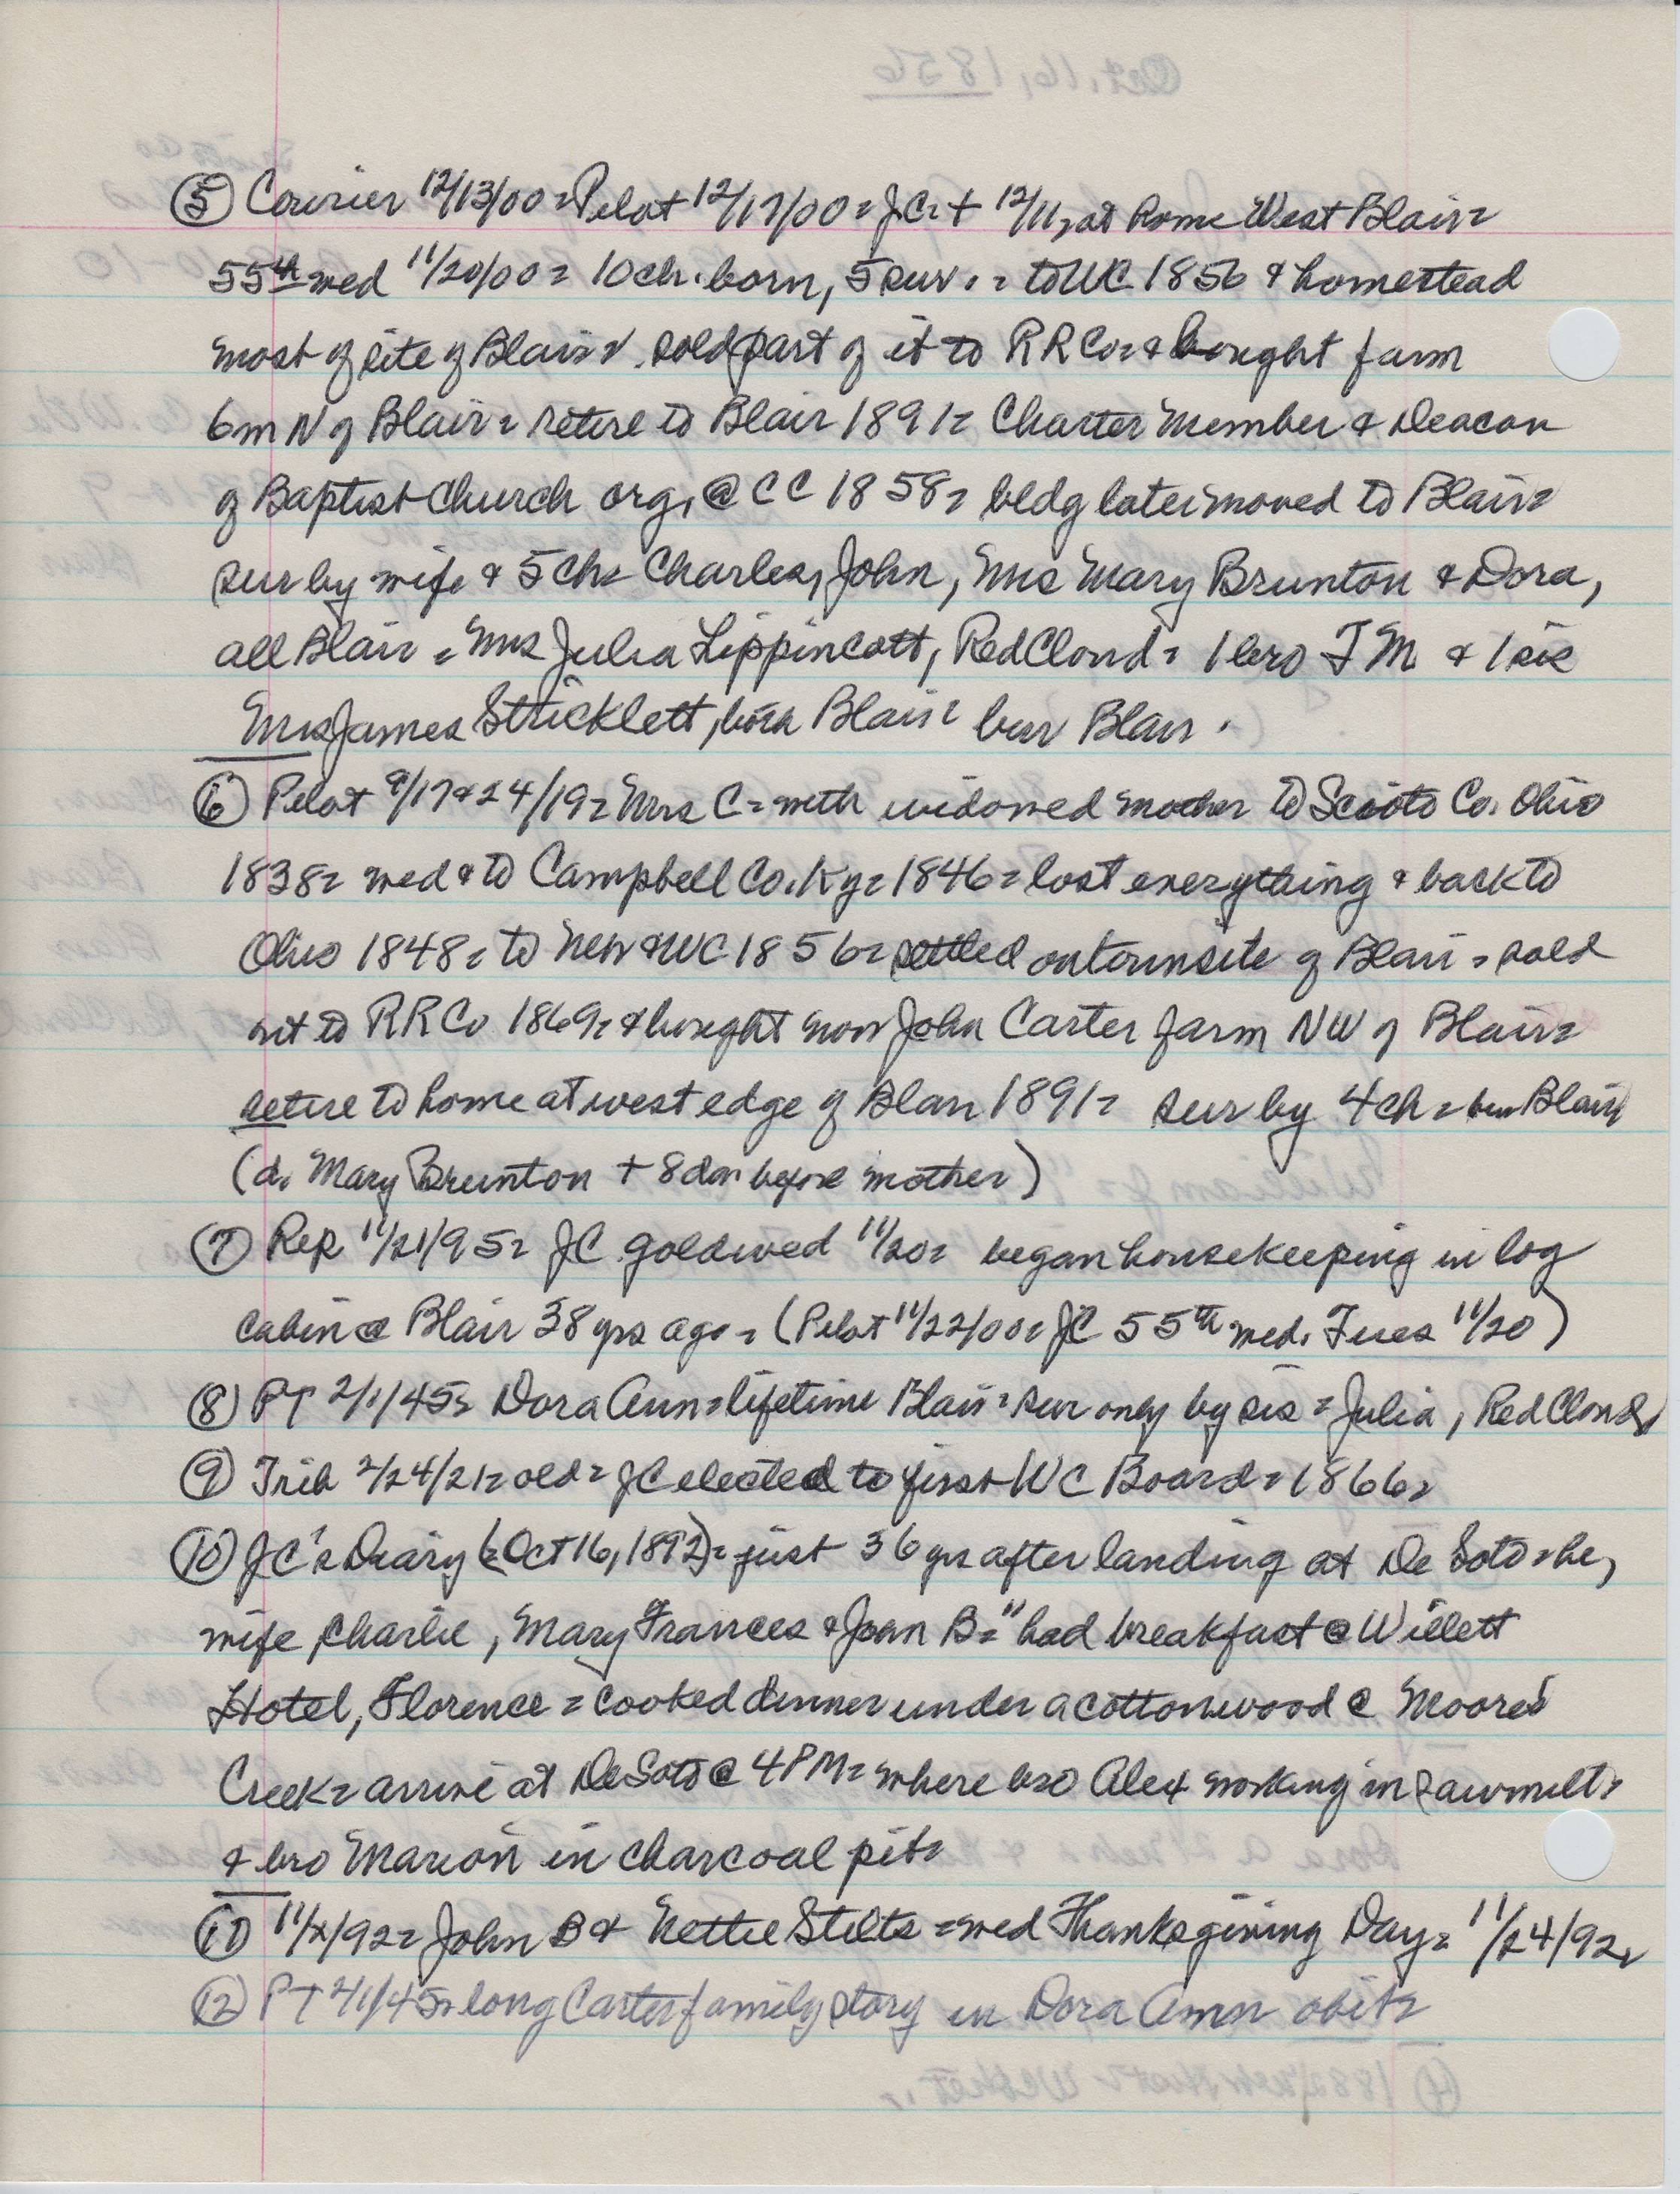 ⑤ Courier 12/13/00 = Pilot 12/17/00 = JC = + 12/11, at home West Blair =
55th wed 11/20/00 = 10 ch. born, 5 surv. = to WC 1856 & homestead
most of site of Blair = sold part of it to RR Co = & bought farm
6m N of Blair = retire to Blair 1891 = Charter Member & Deacon
of Baptist Church org. @ CC 1858 = bldg later moved to Blair =
sur by wife & 5 ch = Charles, John, Mrs Mary Brunton & Dora,
all Blair = Mrs Julia Lippincott, Red Cloud = 1 bro T M & 1 sis
Mrs James Stricklett, both Blair = bur Blair.
⑥ Pilot 9/17 & 24/19 = Mrs C = with widowed mother to Scioto Co. Ohio
1838 = wed & to Campbell Co. Ky = 1846 = lost everything & back to
Ohio 1848 = to Neb & WC 1856 = settled on townsite of Blair = sold
it to RR Co 1869 = & bought now John Carter farm NW of Blair =
retire to home at west edge of Blair 1891 = sur by 4 ch = bur Blair
(d. Mary Brunton + 8 da. before mother)
⑦ Rep 11/21/95 = JC gold wed 11/20 = began housekeeping in log
cabin @ Blair 38 yrs ago = (Pilot 11/22/00 = JC 55th wed. Tues 11/20)
⑧ PT 2/1/45 = Dora Ann = lifetime Blair = sur only by sis = Julia, Red Cloud
⑨ Trib 2/24/21 = old = JC elected to first WC Board = 1866 =
⑩ JC's Diary (= Oct 16, 1892) = just 36 yrs after landing at De Soto = he,
wife, Charlie, Mary Frances & John B = "had breakfast @ Willett
Hotel, Florence = cooked dinner under a cottonwood @ Moores
Creek = arrive at DeSoto @ 4 PM = where bro Alex working in sawmill =
& bro Marion in charcoal pit =
⑪ 11/ /92 = John B & Nettie Stilts = wed Thanksgiving Day = 11/24/92 =
⑫ PT 2/1/45 = long Carter family story in Dora Ann obit =